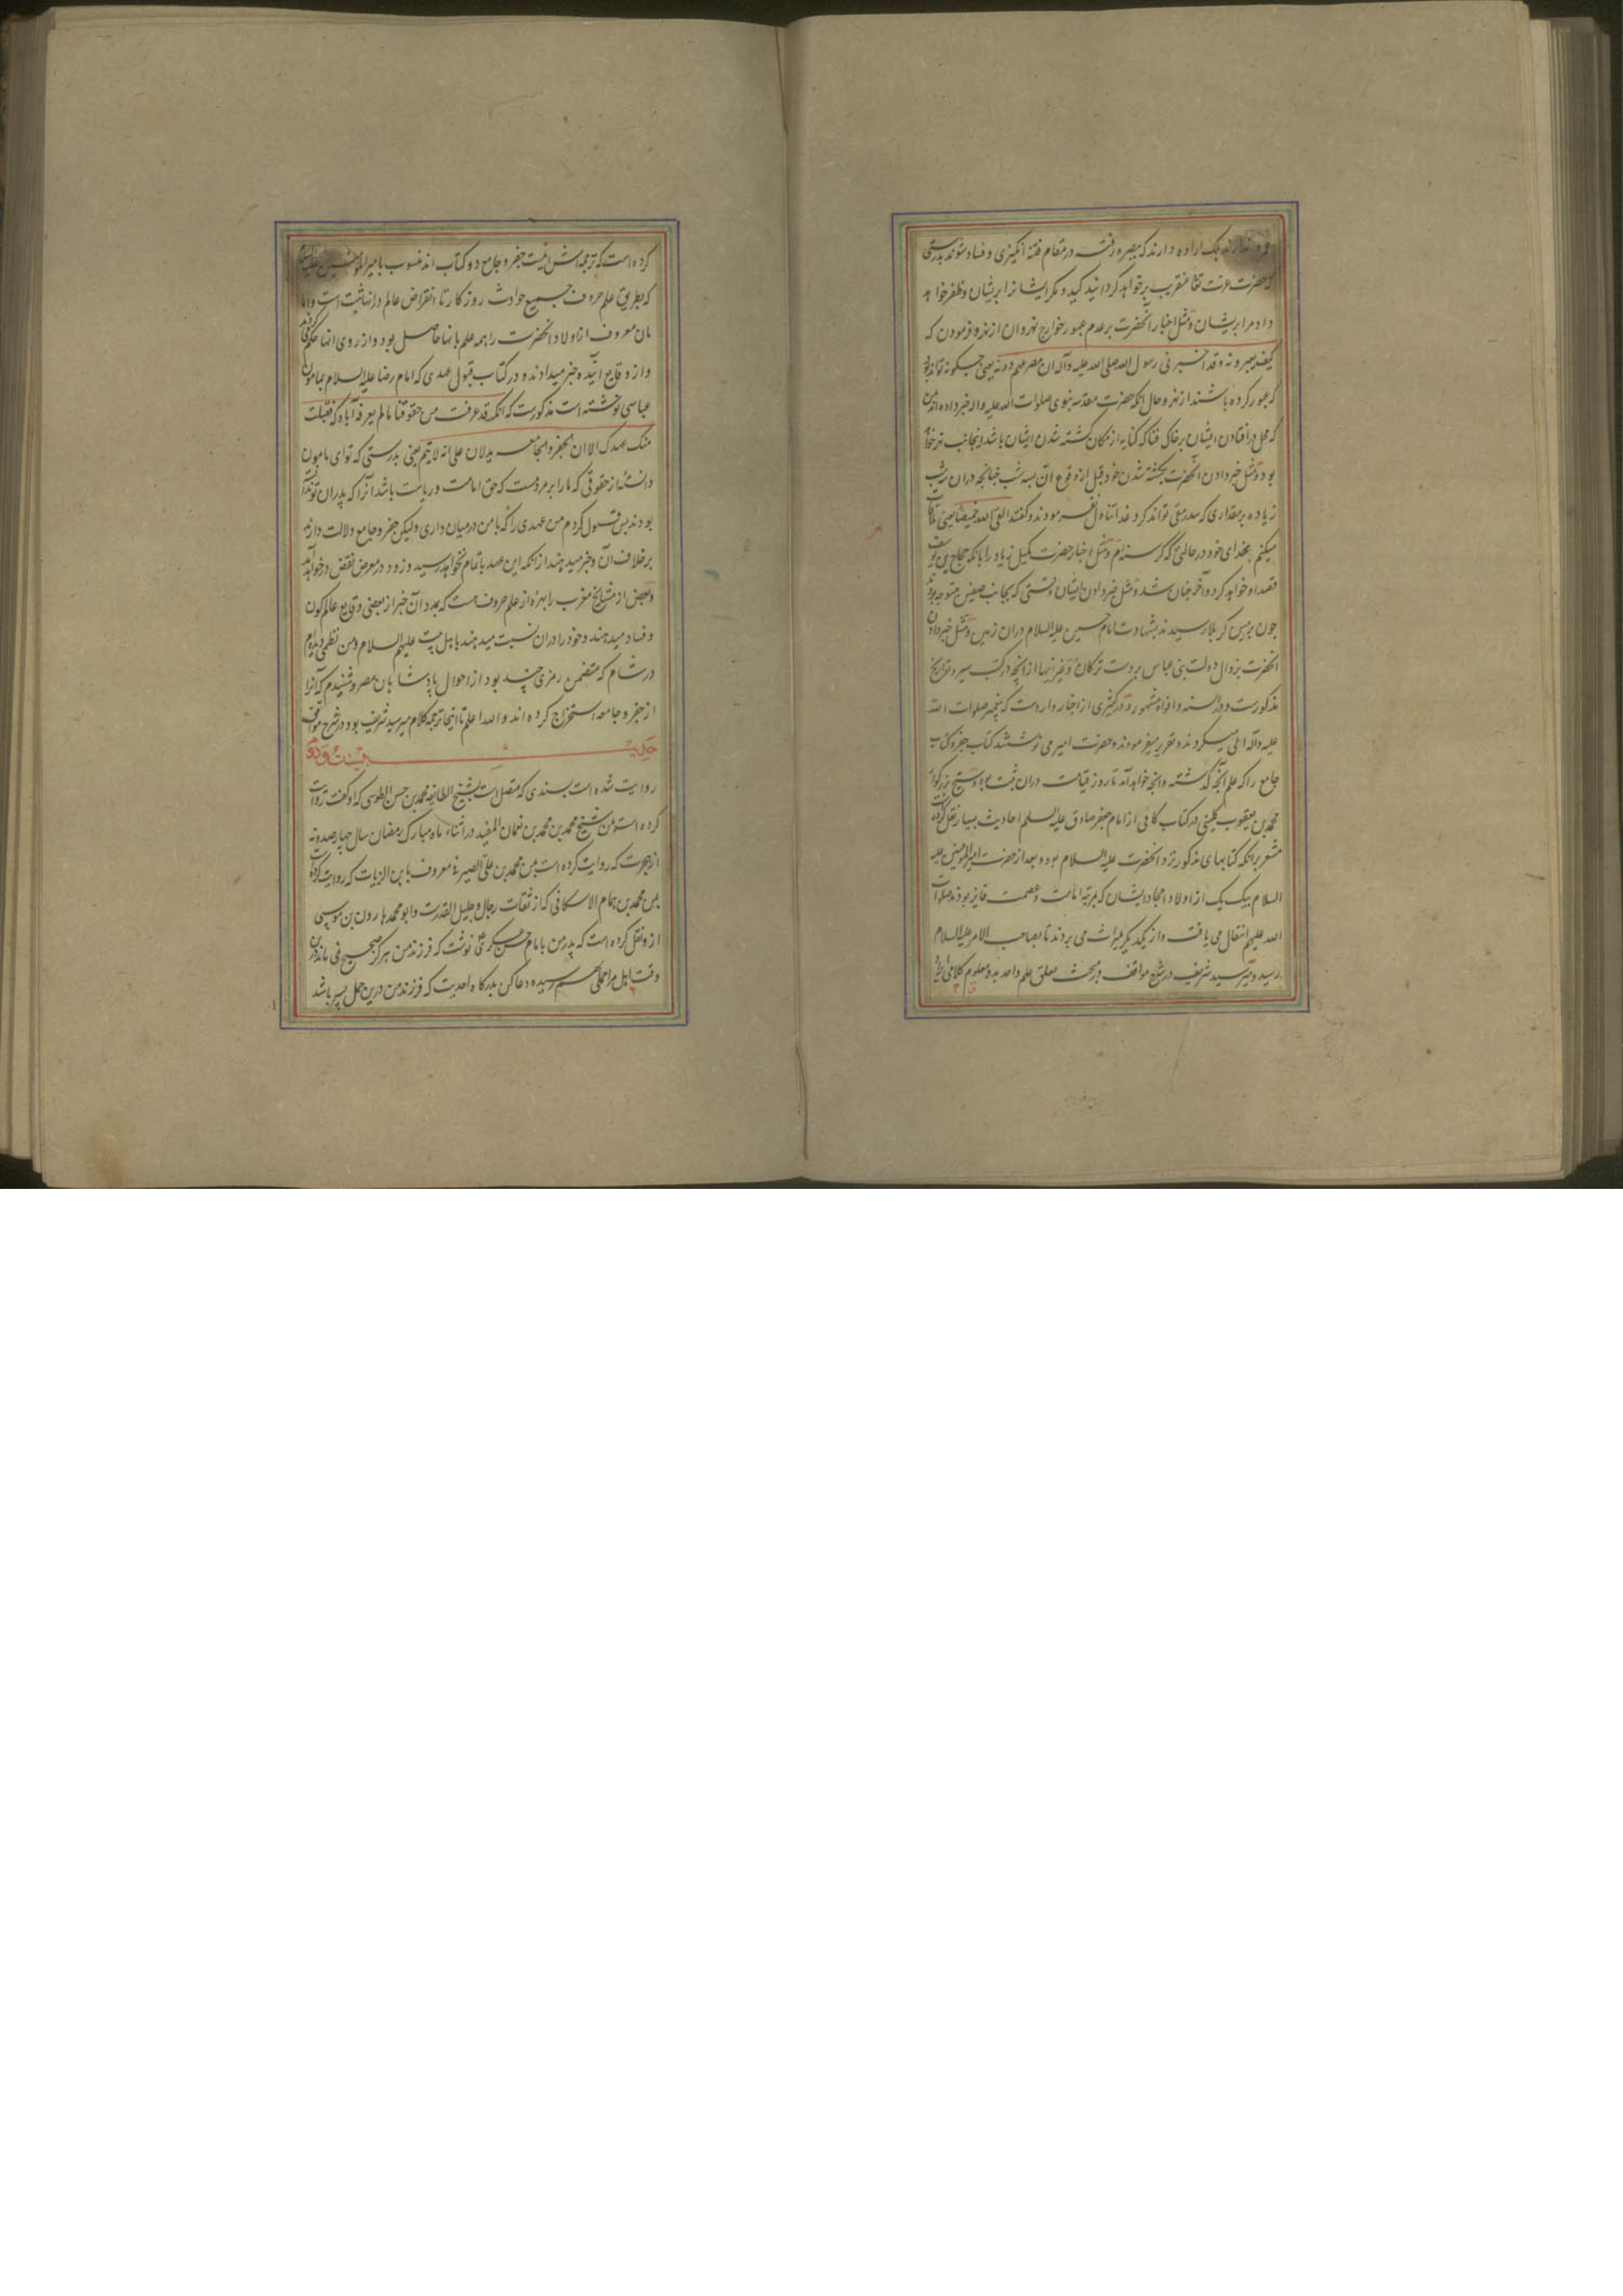 ندارند بلکه اراده دارند که ببصره رفته در مقام فتنه انگیزی و فساد شوند بدرستی
که حضرت عزت تعالی عنقریب برخواهد گردانید کید و مکر ایشانرا بریشان و ظفر خواهد
داد مرا بریشان و مثل اخبار آنحضرت بر عدم عبور خوارج نهروان از نهر و فرمودن که
کیف یعبرونه و قد اخبرنی رسول الله صلی الله علیه وآله ان مصرعهم دونه یعنی چگونه تواند بود
که عبور کرده باشند از نهر و حال انکه حضرت مقدسه نبوی صلوات الله علیه واله خبر داده اند بمن
که محل در افتادن ایشان بر خاک فنا که کنایه از مکان کشته شدن ایشان باشد اینجانب نهر خواهد
بود و مثل خبر دادن آنحضرت بکشته شدن خود قبل از وقوع ان بسه شب چنانچه دران سه شب
زیاده بر مقداری که سد رمق تواند کرد غدا تناول نفرمودند و گفتند القی الله خمیصا یعنی ملاقات
میکنم بخدای خود در حالتی که گرسنه ام و مثل اخبار حضرت کمیل زیاد را بانکه حجاج بن یوسف
قصد او خواهد کرد و آخر چنان شد و مثل خبر دادن ایشان وقتی که بجانب صفین متوجه بودند
چون بزمین کربلا رسیدند بشهادت امام حسین علیه السلام دران زمین و مثل خبر دادن
انحضرت بزوال دولت بنی عباس بر دست ترکان و غیر اینها از انچه در کتب سیر و تواریخ
مذکورست و در السنه و افواه مشهور و در کثیری از اخبار واردست که پیغمبر صلوات الله
علیه وآله املی میکردند و تقریر میفرمودند و حضرت امیر می نوشتند کتاب جفر و کتاب
جامع را که علم آنچه گذشته و انچه خواهد آمد تا روز قیامت دران ثبت بود و شیخ بزرگوار
محمد بن یعقوب کلینی در کتاب کافی از امام جعفر صادق علیه السلم احادیث بسیار نقل کرده است
مشعر برانکه کتابهای مذکور نزد انحضرت علیه السلام بود و بعد از حضرت امیر المومنین علیه
السلام بیک یک از اولاد امجاد ایشان که بمرتبه امامت و عصمت فایز بودند صلوات
الله علیهم انتقال می یافت و از یکدیگر میراث می بردند تا بصاحب الامر علیه السلام
رسید و میر سید شریف در شرح مواقف در مبحث تعلق علم واحد بدو معلوم کلامی ایراد
کرده است که ترجمه اش اینست جفر و جامع دو کتاب اند منسوب بامیر المومنین علیه السلام
که بطریق علم حروف جمیع حوادث روزگار تا انقراض عالم درانها ثبت است و اما
مان معروف از اولاد انحضرت را همه علم بانها حاصل بود و از روی انها حکم می کردند
و از وقایع آینده خبر میدادند و در کتاب قبول عهدی که امام رضا علیه السلام بمامون
عباسی نوشته است مذکورست که انک قد عرفت من حقوقنا مالم یعرفه آباؤک فقبلت
منک عهدک الا ان الجفر والجامعه یدلان علی انه لا یتم یعنی بدرستی که تو ای مامون
دانسته از حقوقی که ما را بر مردمست که حق امامت و ریاست باشد آنرا که پدران تو ندانسته
بودند پس قبول کردم من عهدی را که با من درمیان داری ولیکن جفر و جامع دلالت دارند
بر خلاف آن و خبر میدهند از انکه این عهد باتمام نخواهد رسید و زود در معرض نقض در خواهد آمد
و بعض از مشایخ مغرب را بهره از علم حروف هست که بمدد آن خبر از بعضی وقایع عالم کون
و فساد میدهند و خود را دران نسبت میدهند باهل بیت علیهم السلام و من نظمی دیدم
در شام که متضمن رمزی چند بود از احوال پادشاهان مصر و شنیدم که آنرا
از جفر و جامعه استخراج کرده اند والله اعلم تا اینجا ترجمه کلام میر سید شریف بود در شرح مواقف
حدیث بیست و دوم
روایت شده است بسندی که متصل است بشیخ الطایفه محمد بن حسن الطوسی که او گفت روایت
کرده است بمن شیخ محمد بن محمد بن نعمان المفید در اثناء ماه مبارک رمضان سال چهارصد و نه
از هجرت که روایت کرده است بمن محمد بن علی الصیرفی معروف بابن الزیات که روایت کرده است
بمن محمد بن همام الاسکافی که از ثقات رجال و جلیل القدرست و ابو محمد هارون بن موسی
ازو نقل کرده است که پدر من بامام حسن عسکری ع نوشت که فرزند من هرگز صحیح نمی ماند درین
وقت اهل مرا حملی بهم رسیده دعا کن بدرگاه احدیت که فرزند من درین حمل پسر باشد